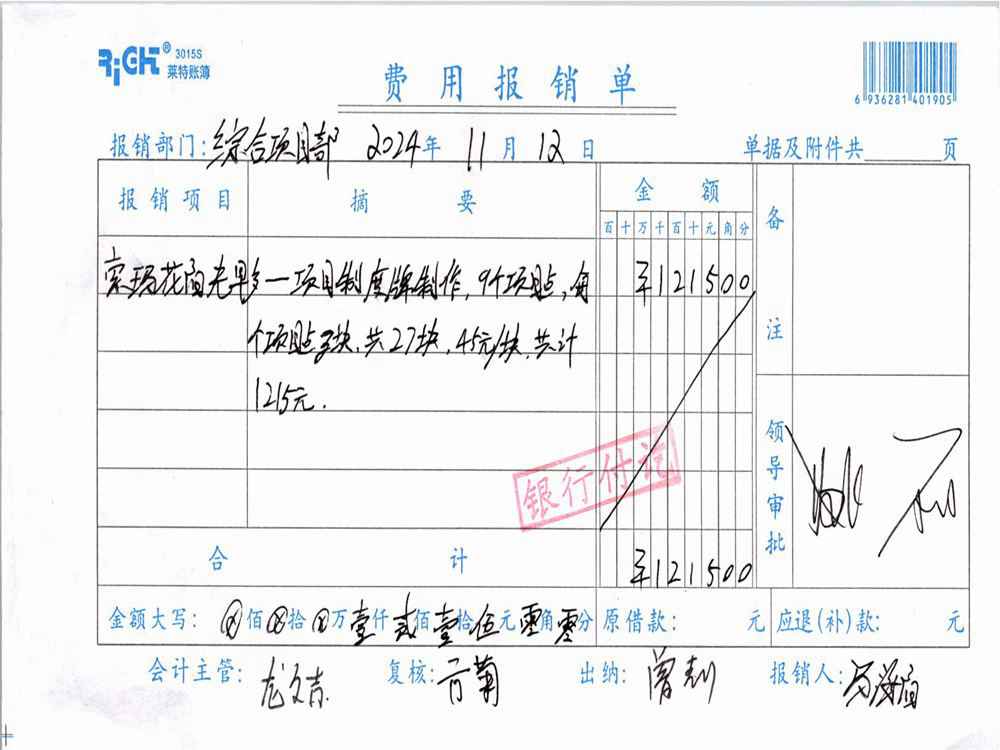 RiGHT® 3015S
莱特账簿
费用报销单
6 936281 401905
报销部门:综合项目部 2024年 11月 12日 单据及附件共 页
报销项目 摘要 金额 备注
百十万千百十元角分
索玛花 一项目制度牌制作,9个项点,每 ¥121500
个项点3块,共27块,45元/块,共计
1215元.
银行付讫
领导审批
合计 ¥121500
金额大写: ⊗佰⊗拾⊗万壹仟贰佰壹拾伍元零角零分 原借款: 元 应退(补)款: 元
会计主管:龙文吉 复核: 菊 出纳:曾 报销人:冯海